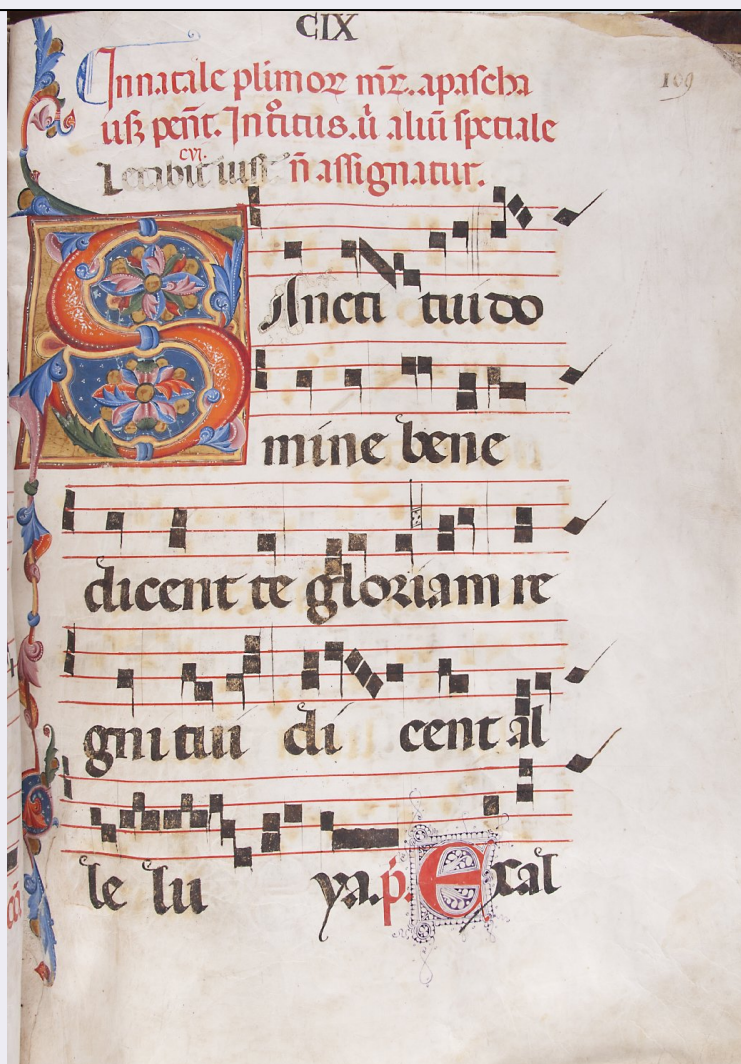 CIX
109
In natale plimoꝝ mr̄ꝝ. apascha
usqꝫ pent̄. Introitus. ů aliu᷒ spetiale
cvi.
Letabit᷒ iust᷒ n̄ assignatur.
Sancti tui do
mine bene
dicent te gloriam re
gni tui di cent al
le lu ya. p̄. Exal